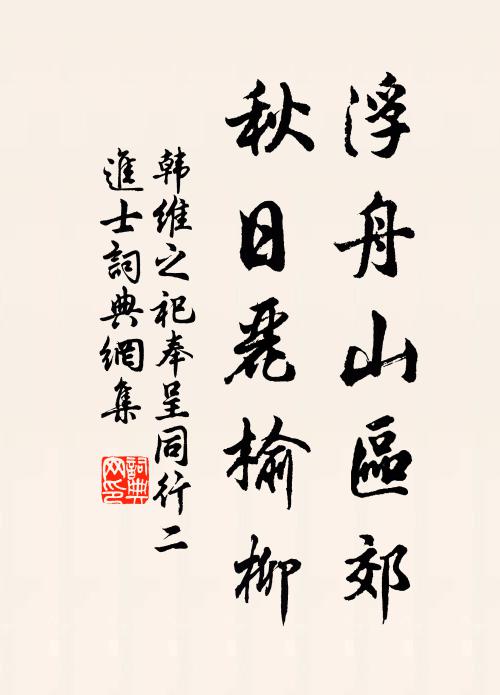 浮舟山區郊
秋日麗榆柳
韩維之祀奉呈同行二
進士詞典網集
詞典
网印